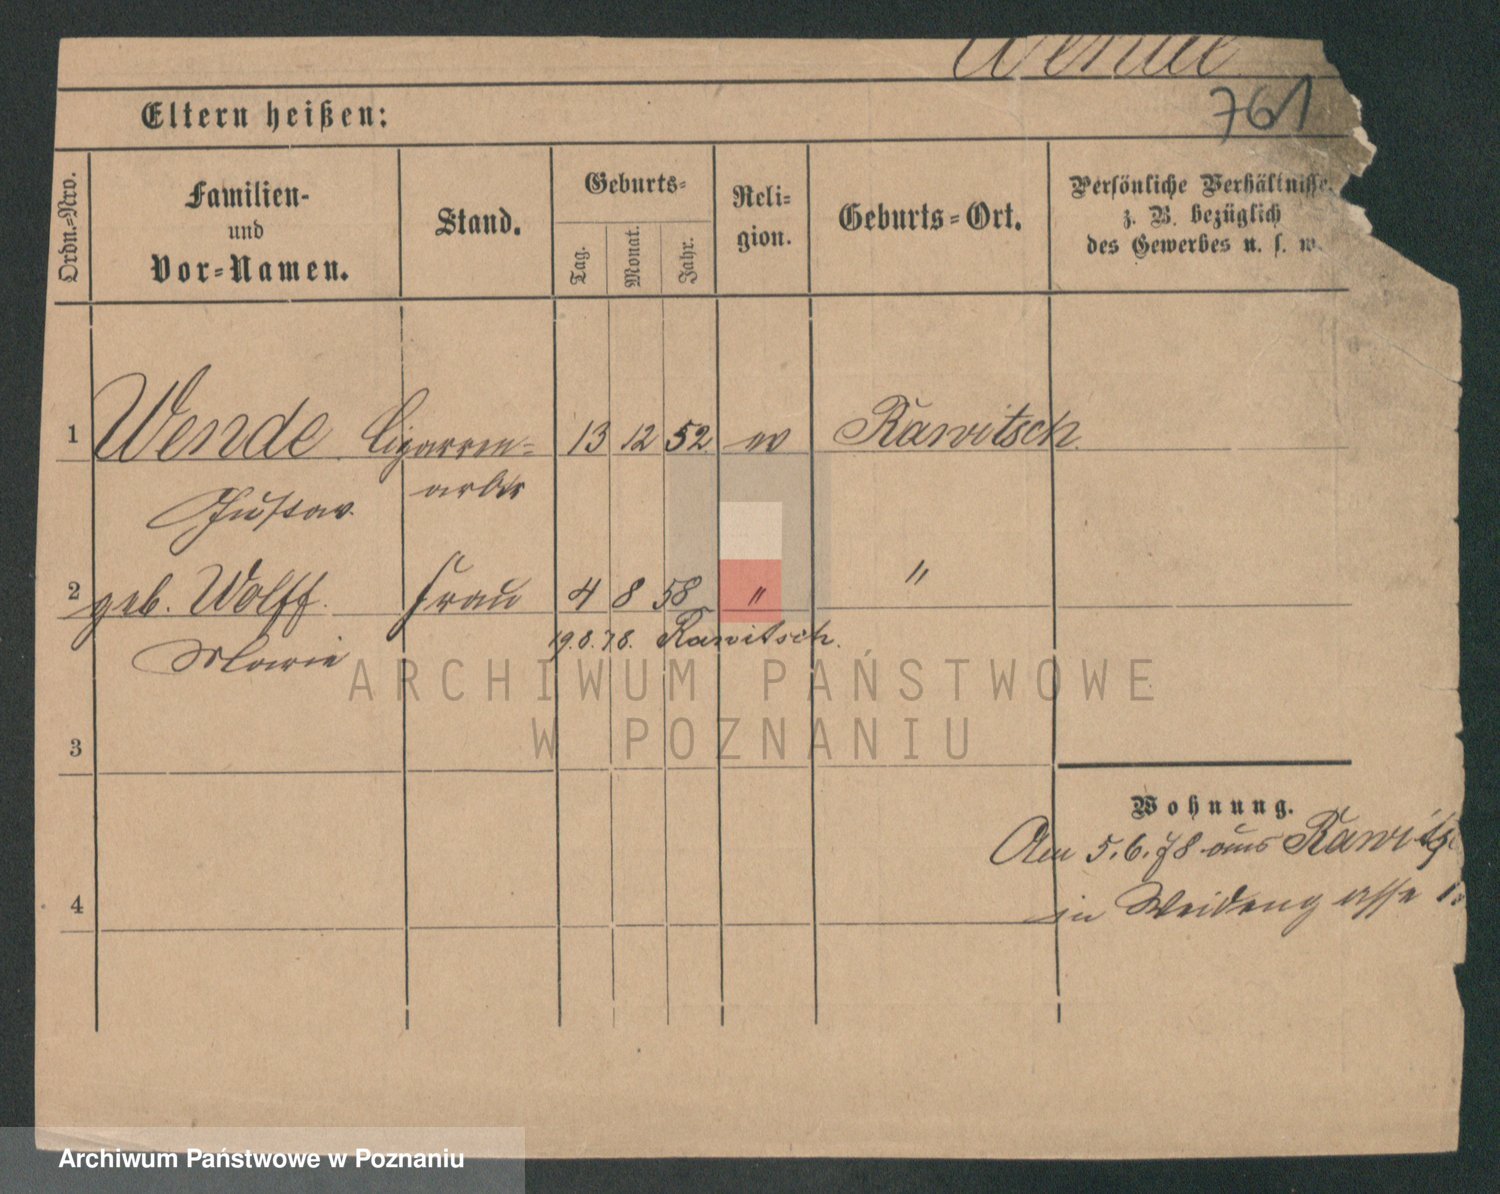 Wende
761
Eltern heißen:
Ordn.=Nro.
Familien-
und
Vor=Namen.
Stand.
Geburts=
Tag.
Monat.
Jahr.
Reli=
gion.
Geburts=Ort.
Persönliche Verhältnisse,
z. B. bezüglich
des Gewerbes u. s. w.
1 Wende Cigarren= 13 12 52 ev Rawitsch.
Gustav. arbtr
2 geb. Wolff. Frau 4 8 58 " "
Marie 19.8.78. Rawitsch.
ARCHIWUM PAŃSTWOWE
W POZNANIU
3
Wohnung.
Am 5.6.78 aus Rawits
4 in Weidengasse
Archiwum Państwowe w Poznaniu